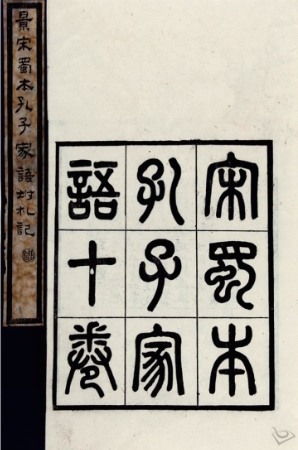 宋蜀本
孔子家
語十卷
景宋蜀本孔子家語坿札記